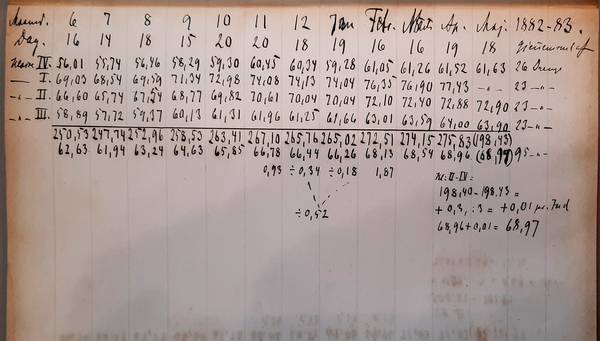 Maaned. 6 7 8 9 10 11 12 Jan Febr. Marts Ap. Maj. 1882-83.
Dag. 16 14 18 15 20 20 18 19 16 16 19 18
IV. 56,01 55,74 56,96 58,29 59,30 60,45 60,34 59,28 61,05 61,26 61,52 61,63 26 Dreng
-"- I 69,03 68,54 69,59 71,34 72,98 74,08 74,13 74,04 76,35 76,90 77,43 -"- 23 -"-
-"- II. 66,60 65,74 67,54 68,77 69,82 70,61 70,04 70,04 72,10 72,40 72,88 72,90 23 -"-
-"- III. 58,89 57,72 59,37 60,13 61,31 61,96 61,25 61,66 63,01 63,59 64,00 63,90 23 -"-
250,53 247,74 252,96 258,53 263,41 267,10 265,76 265,02 272,51 274,15 275,83 (198,43)
62,63 61,94 63,24 64,63 65,85 66,78 66,44 66,26 68,13 68,54 68,96 (68,97) 95 -"-
0,93 ÷0,34 ÷0,18 1,87
÷0,52
II-IV:
198,40 - 198,43 =
+ 0,3, : 3 = + 0,01 pr.
68,96 + 0,01 = 68,97